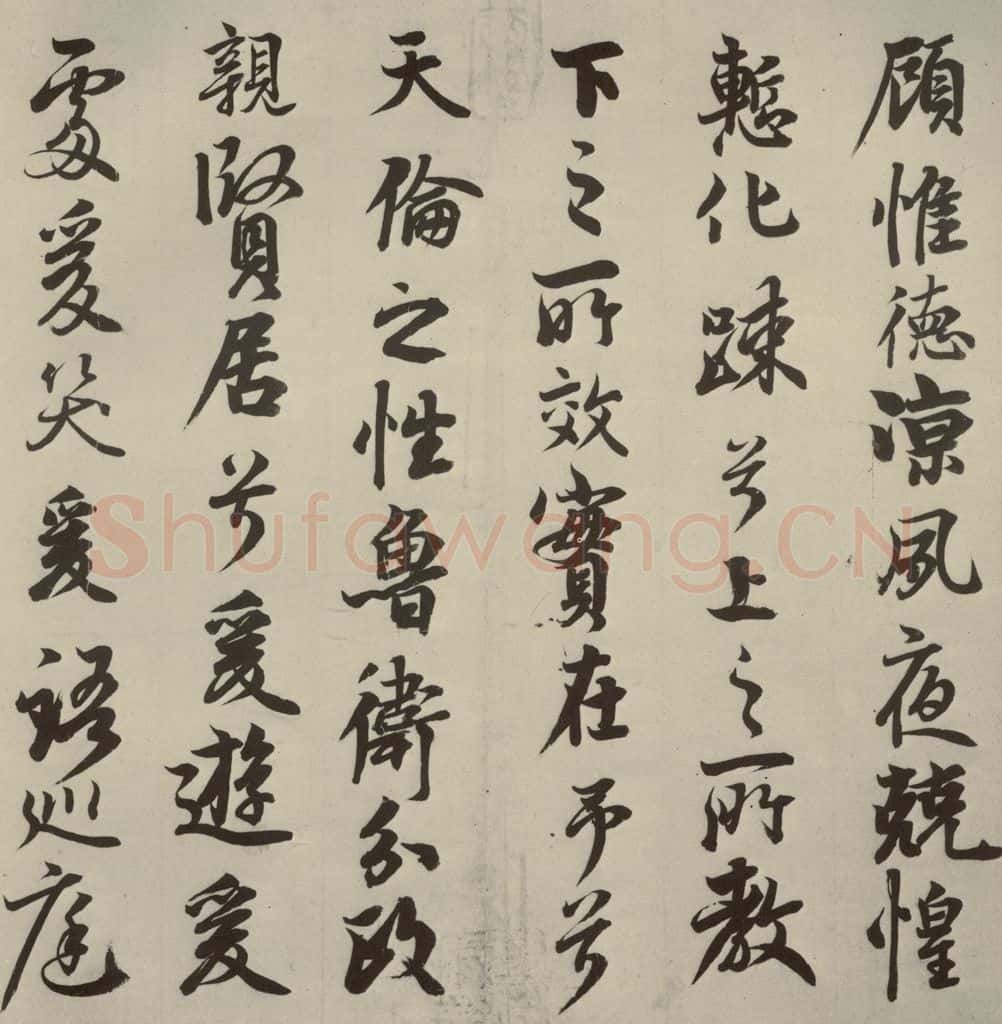 顧惟德涼夙夜兢惶
慙化踈兮上之所教
下之所效實在予兮
天倫之性魯衛分政
親賢居兮爰遊爰
處爰笑爰語巡庭
Shufawang.CN